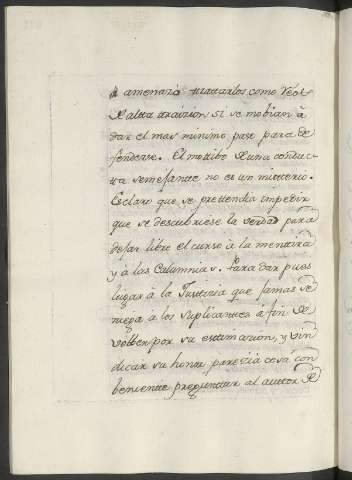 se amenaza tratarlos como Reos
de alta traizion si se mobian à
dar el mas minimo paso para de
fenderse. El motibo de una conduc
ta semejante no es un misterio.
Es claro que se prettendia impedir
que se descubriese la verdad para
dejar libre el curso à la mentira
y a las Calumnias. Para dar pues
lugar à la Justizia que jamas se
niega a los suplicantes à fin de
volber por su estimazion, y vin
dicar su honor parezia cosa con
beniente preguntar al autor de